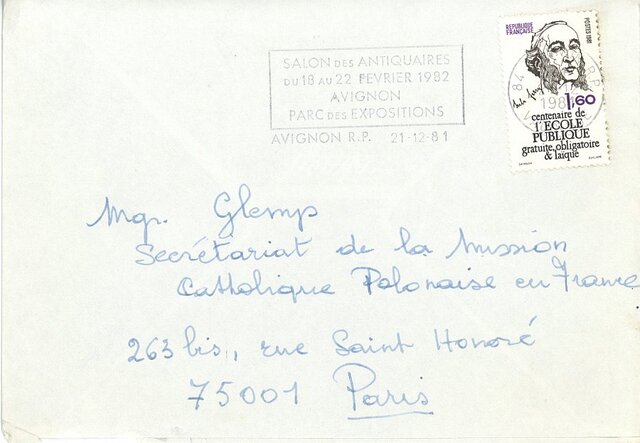 SALON DES ANTIQUAIRES
DU 18 AU 22 FEVRIER 1982
AVIGNON
PARC DES EXPOSITIONS
AVIGNON R.P. 21-12-81
REPUBLIQUE
FRANÇAISE
POSTES 1981
84
R.P.
1,60
centenaire de
l'ECOLE
PUBLIQUE
gratuite, obligatoire
& laïque
Mgr. Glemp
Secrétariat de la Mission
Catholique Polonaise en France
263 bis, rue Saint Honoré
75001 Paris